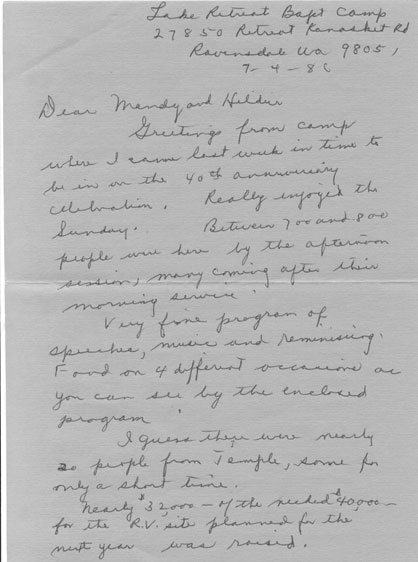 Lake Retreat Bapt Camp
27850 Retreat Kanasket Rd
Ravensdale Wa 98051
7-4-86
Dear Mendy and Hildur
Greetings from camp
where I came last week in time to
be in on the 40th anniversary
celebration. Really enjoyed the
Sunday. Between 700 and 800
people were here by the afternoon
session, many coming after their
morning service.
Very fine program of
speeches, music and reminising.
Food on 4 different occasions as
you can see by the enclosed
program
I guess there were nearly
20 people from Temple, some for
only a short time.
Nearly $32,000 — of the needed $40,000 —
for the R.V. site planned for the
next year was raised.